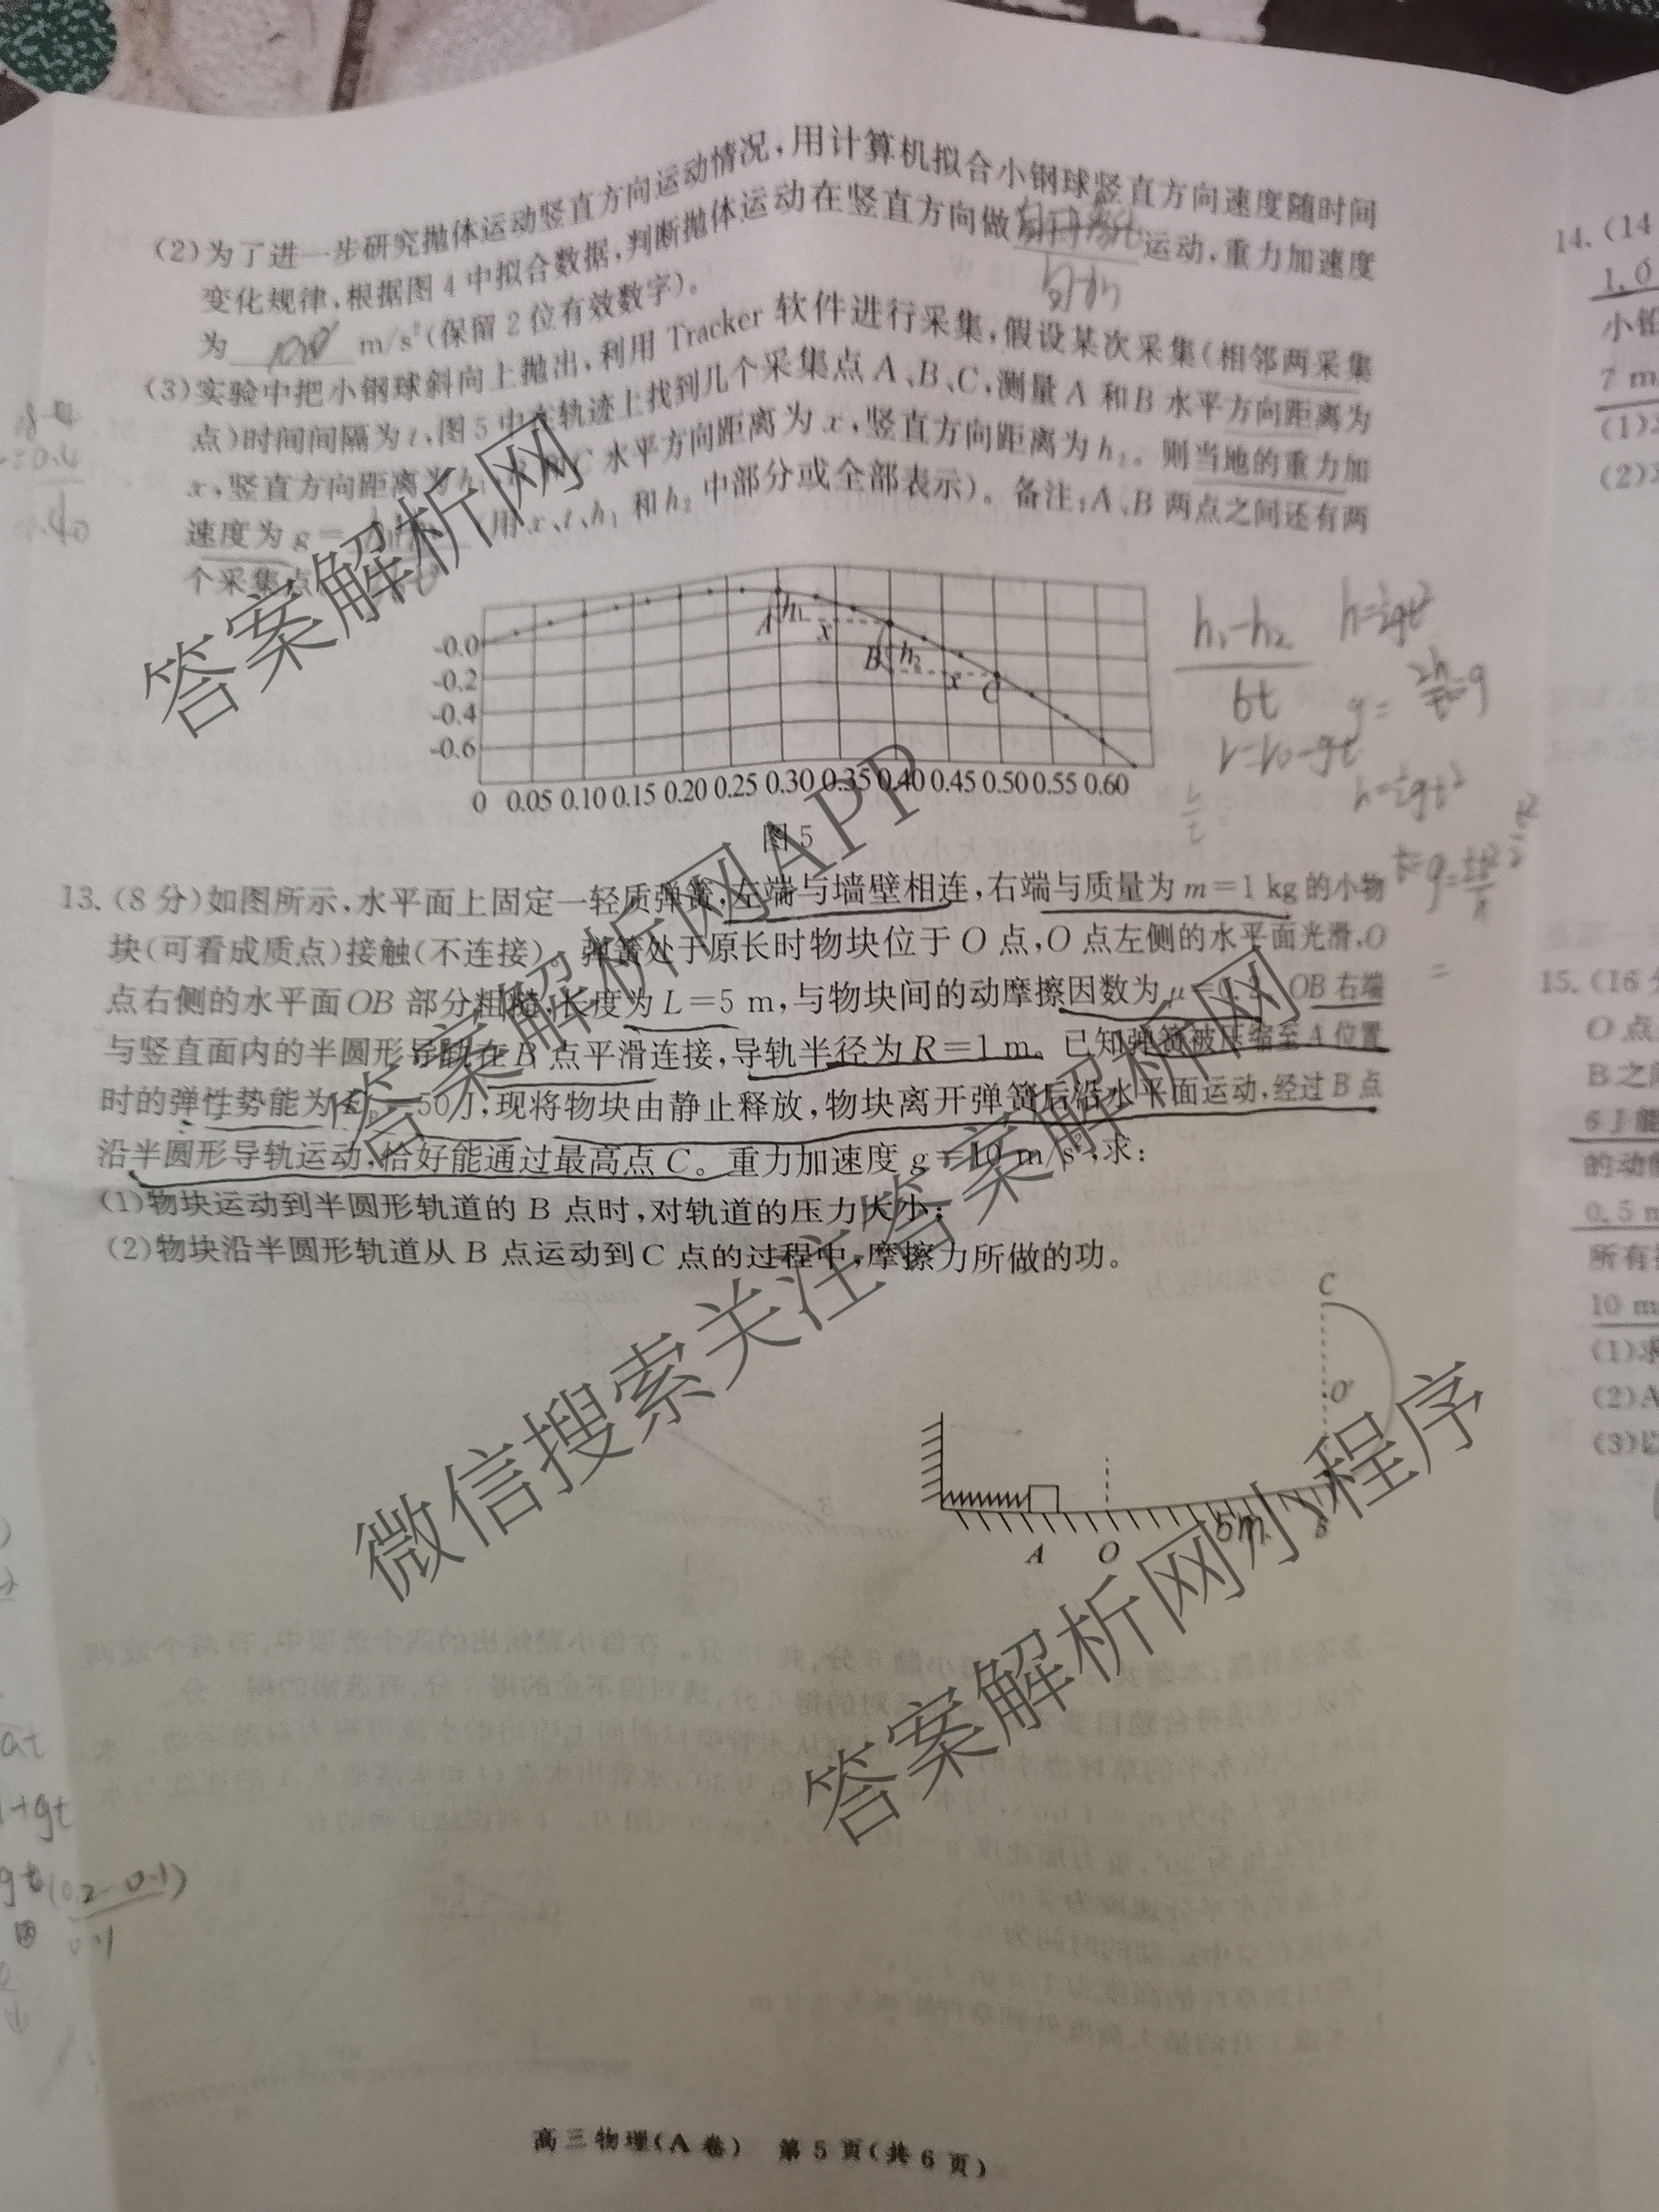 (2)为了进一步研究抛体运动竖直方向运动情况,用计算机拟合小钢球竖直方向速度随时间
变化规律,根据图4中拟合数据,判断抛体运动在竖直方向做 运动,重力加速度
为 m/s²(保留2位有效数字)。
(3)实验中把小钢球斜向上抛出,利用Tracker软件进行采集,假设某次采集(相邻两采集
点)时间间隔为t,图5中在轨迹上找到几个采集点A、B、C,测量A和B水平方向距离为
x,竖直方向距离为h₁,B和C水平方向距离为x,竖直方向距离为h₂。则当地的重力加
速度为g= 用x、t、h₁和h₂中部分或全部表示)。备注:A、B两点之间还有两
个采集点
-0.0
-0.2
-0.4
-0.6
A h₁ x
B h₂ x C
0 0.05 0.10 0.15 0.20 0.25 0.30 0.35 0.40 0.45 0.50 0.55 0.60
图5
h₁-h₂
6t
h=½gt²
v=v0-gt
h=½gt²
13.(8分)如图所示,水平面上固定一轻质弹簧,左端与墙壁相连,右端与质量为m=1 kg的小物
块(可看成质点)接触(不连接)。弹簧处于原长时物块位于O点,O点左侧的水平面光滑,O
点右侧的水平面OB部分粗糙,长度为L=5 m,与物块间的动摩擦因数为μ OB右端
与竖直面内的半圆形导轨在B点平滑连接,导轨半径为R=1 m。已知弹簧被压缩至A位置
时的弹性势能为 50 J,现将物块由静止释放,物块离开弹簧后沿水平面运动,经过B点
沿半圆形导轨运动,恰好能通过最高点C。重力加速度g=10 m/s²,求:
(1)物块运动到半圆形轨道的B点时,对轨道的压力大小;
(2)物块沿半圆形轨道从B点运动到C点的过程中,摩擦力所做的功。
C
O'
A O 5m B
高三物理(A卷) 第5页(共6页)
14.(14
1.0
小铅
7 m
(1)
(2)
15.(16分
O点
B之间
6 J能
的动能
0.5 m
所有
10 m
(1)求
(2)A
(3)
at
+gt
gt(0.2-0.1)
0.1
答案解析网
答案解析网APP
答案解析网
微信搜索关注答案解析网
答案解析网小程序